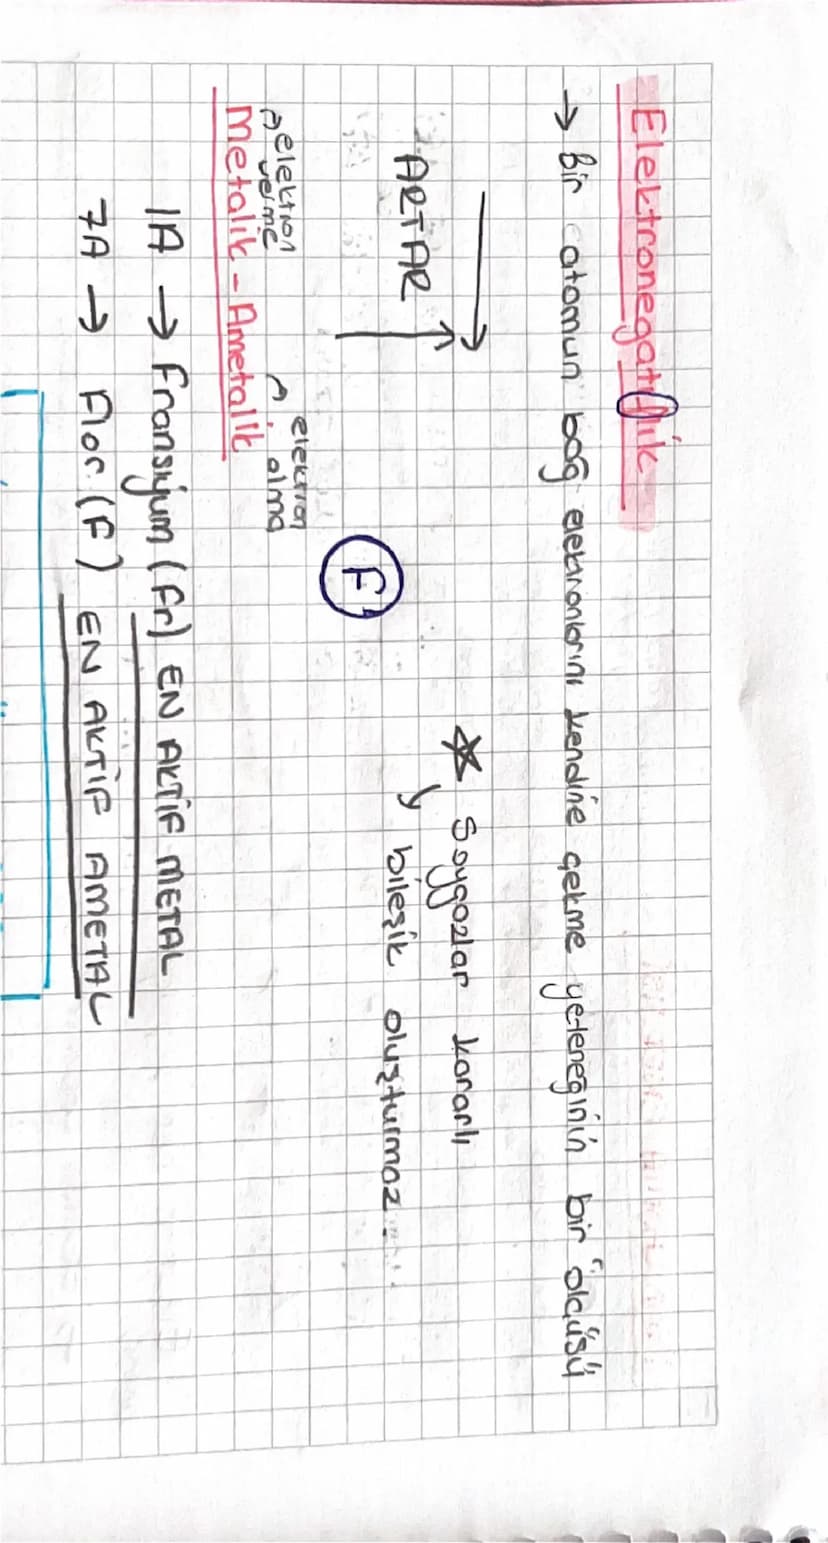 Elektronegatiflik
→ Bir atomun bağ elektronlarını kendine çekme yeteneğinin bir ölçüsü
ARTAR
F
* Soygazlar kararlı
bileşik oluşturmaz.
elektron verme
elektron alma
Metalik - Ametalik
1A → Fransiyum (Fr) EN AKTİF METAL
7A → Flor (F) EN AKTİF AMETAL